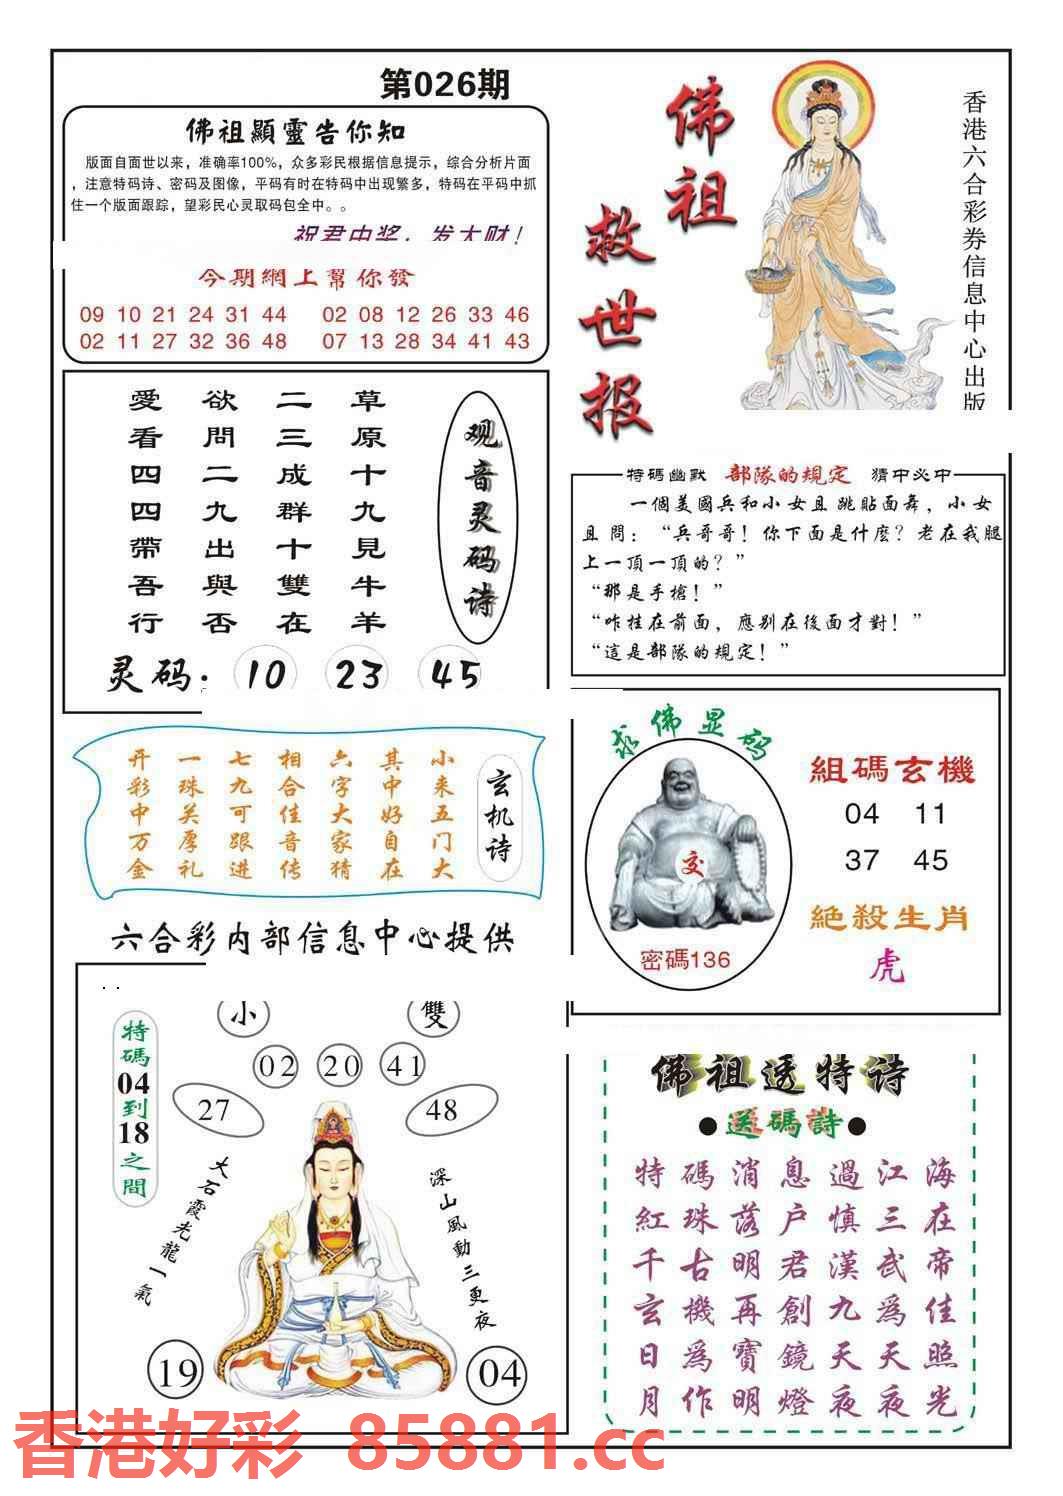 第026期
佛祖顯靈告你知
版面自面世以来，准确率100%，众多彩民根据信息提示，综合分析片面
，注意特码诗、密码及图像，平码有时在特码中出现繁多，特码在平码中抓
住一个版面跟踪，望彩民心灵取码包全中。。
祝君中奖，发大财！
今期網上幫你發
09 10 21 24 31 44 02 08 12 26 33 46
02 11 27 32 36 48 07 13 28 34 41 43
佛祖
救世报
香港六合彩券信息中心出版
观音灵码诗
草原十九見牛羊
二三成群十雙在
欲問二九出與否
愛看四四帶吾行
灵码：10 23 45
特碼幽默 部隊的規定 猜中必中
一個美國兵和小女且跳貼面舞，小女
且問：“兵哥哥！你下面是什麼？老在我腿
上一頂一頂的？”
“那是手槍！”
“咋挂在前面，應别在後面才對！”
“這是部隊的規定！”
玄机诗
小来五门大
其中好自在
六字大家猜
相合佳音传
七九可跟进
一珠关厚礼
开彩中万金
求佛显码
交
密碼136
組碼玄機
04 11
37 45
絕殺生肖
虎
六合彩内部信息中心提供
特碼04到18之間
小 雙
02 20 41
27 48
大石霞光龍一氣
深山風動三更夜
19 04
佛祖透特诗
●送碼詩●
特碼消息過江海
紅珠落户慎三在
千古明君漢武帝
玄機再創九爲佳
日爲寶鏡天天照
月作明燈夜夜光
香港好彩 85881.cc